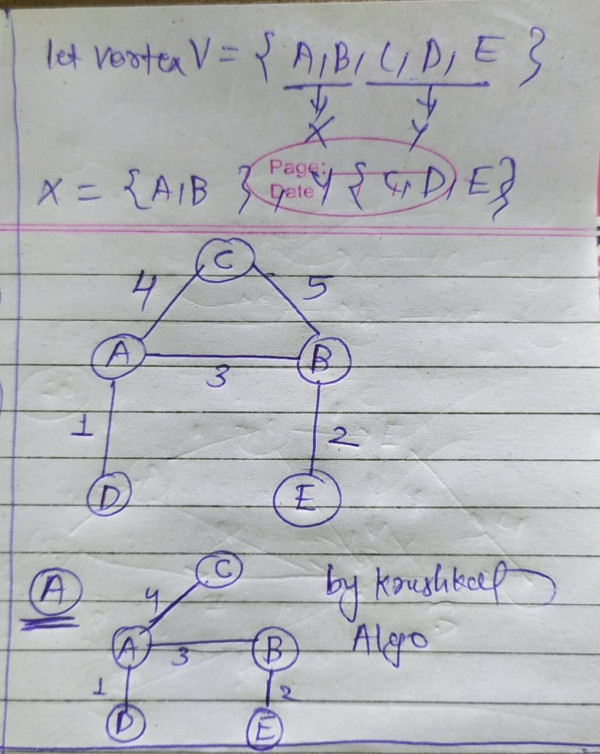 let vertex V = { A, B, C, D, E }
X Y
Page:
Date
X = { A, B } , Y { C, D, E }
C
4 5
A B
3
1 2
D E
A
C
by Krushkal
4
Algo
A B
3
1 2
D E